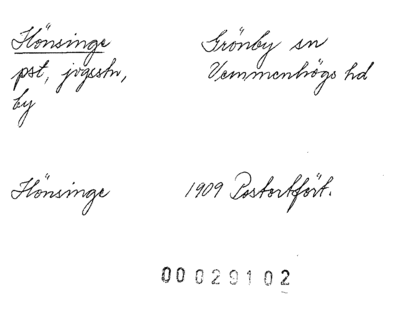 Hönsinge Grönby sn
pst, jvgsstn, Vemmenhögs hd
by
Hönsinge 1909 Postortfört.
00029102